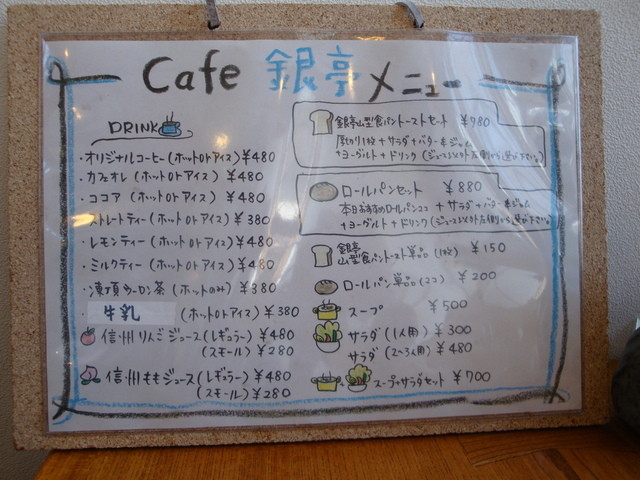 Cafe 銀亭 メニュー
DRINK
・オリジナルコーヒー(ホットorアイス) ¥480
・カフェオレ(ホットorアイス) ¥480
・ココア(ホットorアイス) ¥480
・ストレートティー(ホットorアイス) ¥380
・レモンティー(ホットorアイス) ¥480
・ミルクティー(ホットorアイス) ¥480
・凍頂ウーロン茶(ホットのみ) ¥380
・牛乳(ホットorアイス) ¥380
信州りんごジュース(レギュラー) ¥480
(スモール) ¥280
・信州ももジュース(レギュラー) ¥480
(スモール) ¥280
銀亭山型食パントーストセット ¥980
厚切り1枚+サラダ+バター&ジャム
+ヨーグルト+ドリンク(ジュース以外左側から選び下さい)
ロールパンセット ¥880
本日おすすめロールパン2コ+サラダ+バター&ジャム
+ヨーグルト+ドリンク(ジュース以外左側から選び下さい)
銀亭
山型食パントースト単品(1枚) ¥150
ロールパン単品(2コ) ¥200
スープ ¥500
サラダ(1人用) ¥300
サラダ(2〜3人用) ¥480
スープ+サラダセット ¥700